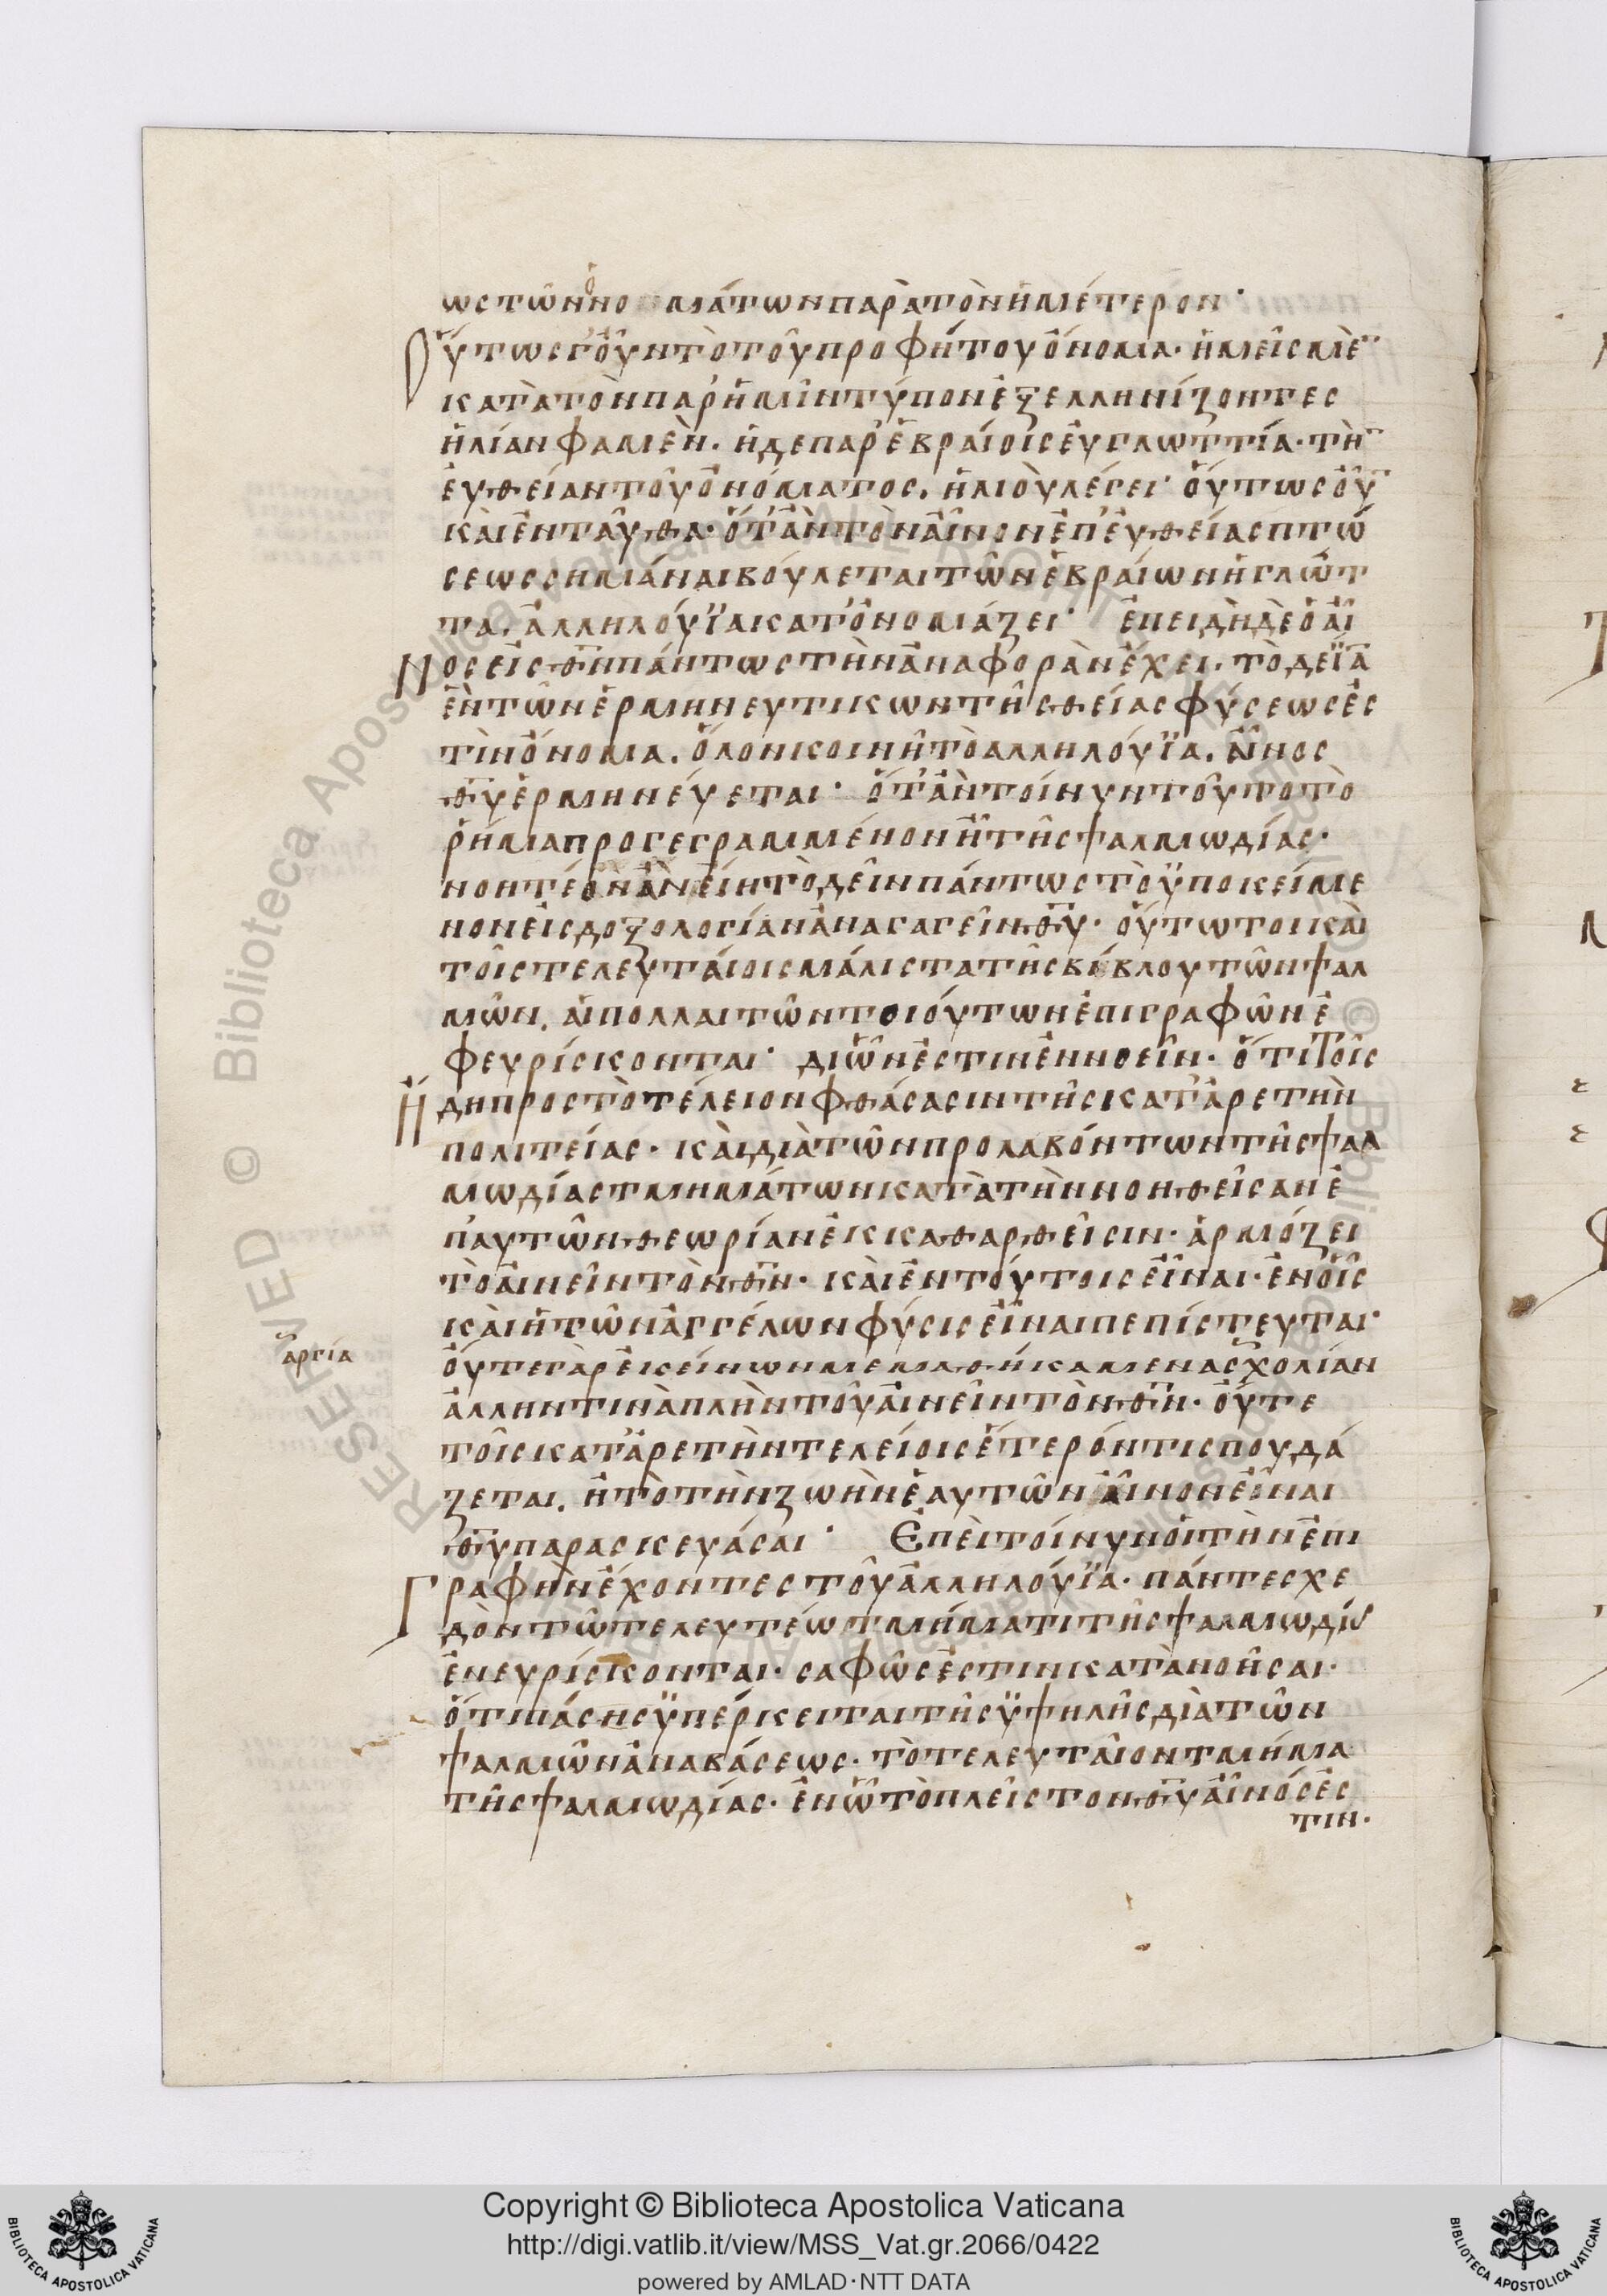 ὡς τῶν ὀνομάτων παρὰ τὸν ἡμέτερον·
Οὕτως γ᾽ οὖν τὸ τοῦ προφήτου ὄνομα· ἡμεῖς μὲ̄
κατὰ τὸν παρ᾽ ἡμῖν τύπον ἐξελληνίζοντες
ἠλίαν φαμὲν. ἡ δε παρ᾽ ἑβραίοις εὐγλωττία· τὴ̄
ἐυθείαν τοῦ ὀνόματος. ἠλιοὺ λέγει· οὕτως οὖ̄
καὶ ἐνταῦθα· ὅτ᾽ ἂν τὸν αἶνον ἐπ᾽ ἐυθείας πτώ
σεως σημιάναι βούλεται τῶν ἑβραίων ἡ γλῶτ
τα. ἀλληλούϊα κατονομάζει· ἐπειδὴ δὲ ὁ αἶ
Νος εἰς θν̄ πάντως τὴν ἀναφορὰν ἔχει. τὸ δε ἴα
ἓν τῶν ἑρμηνευτικων τῆς θείας φύσεως ἐς
τὶν ὄνομα. ὅλον κοινῇ τὸ αλληλούϊα. αἶνος
θῡ ἑρμηνέυεται· ὅτ᾽ ἂν τοίνυν τοῦτο τὸ
ῥῆμα προγεγραμμένον ἦ τῆς ψαλμωδίας·
νοητέον ἂν εἴη τὸ δεῖν πάντως τὸ ὑποκείμε
νον εἰς δοξολογίαν ἀναγαγεῖν θῡ· οὕτω τοι καὶ
τοῖς τελευτάιοις μάλιστα τῆς βίβλου τῶν ψαλ
μῶν. ἁι πολλαι τῶν τοιούτων ἐπιγραφῶν ἐ
φευρίσκονται· δι ὧν ἐστιν ἐννοεῖν· ὅτι τοῖς
ἤδη προς τὸ τέλειον φθάσασιν τῆς κατ᾽ ἀρετὴν
πολιτείας· καὶ διὰ τῶν προλαβόντων τῆς ψαλ
μωδίας τμημάτων κατὰ τὴν νοηθεῖσαν ἐ
π᾽ αυτῶν θεωρίαν ἐκκαθαρθεῖσιν· ἁρμόζει
τὸ αἰνεῖν τὸν θν̄· καὶ ἐν τούτοις εἶναι· ἐν οἷς
καὶ ἡ τῶν ἀγγέλων φύσις εἶναι πεπίστευται·
ἀργία
οὔτε γὰρ ἐκείνων μεμαθήκαμεν ασχολίαν
ἄλλην τινὰ πλὴν τοῦ αἰνεῖν τὸν θν̄· οὔτε
τοῖς κατ᾽ ἀρετὴν τελείοις ἕτερόν τι σπουδά
ζεται. ἢ τὸ τὴν ζωὴν ἑαυτῶν αἶνον εἶναι
θῡ παρασκευάσαι· Ἐπεὶ τοίνυν ὁι τὴν ἐπι
Γραφὴν ἔχοντες τοῦ ἀλληλούϊα· πάντες χε
δὸν τῶ τελευτέω τμήματι τῆς ψαλμωδίας
ἐνευρίσκονται· σαφῶς ἐστιν κατὰνοῆσαι·
ὅτι πάσης ὑπέρκειται τῆς ὑψηλῆς διὰ τῶν
ψαλμῶν ἀναβάσεως· τὸ τελευταῖον τμῆμα
τῆς ψαλμωδίας· ἐν ὧ τὸ πλεῖστον θῡ αἶνός ἐς
τιν·
RESERVED © Biblioteca Apostolica Vaticana ALL RIGHTS RESERVED © Biblioteca Apostolica Vaticana ALL RIGHTS
Copyright © Biblioteca Apostolica Vaticana
http://digi.vatlib.it/view/MSS_Vat.gr.2066/0422
powered by AMLAD·NTT DATA
BIBLIOTECA APOSTOLICA VATICANA
BIBLIOTECA APOSTOLICA VATICANA